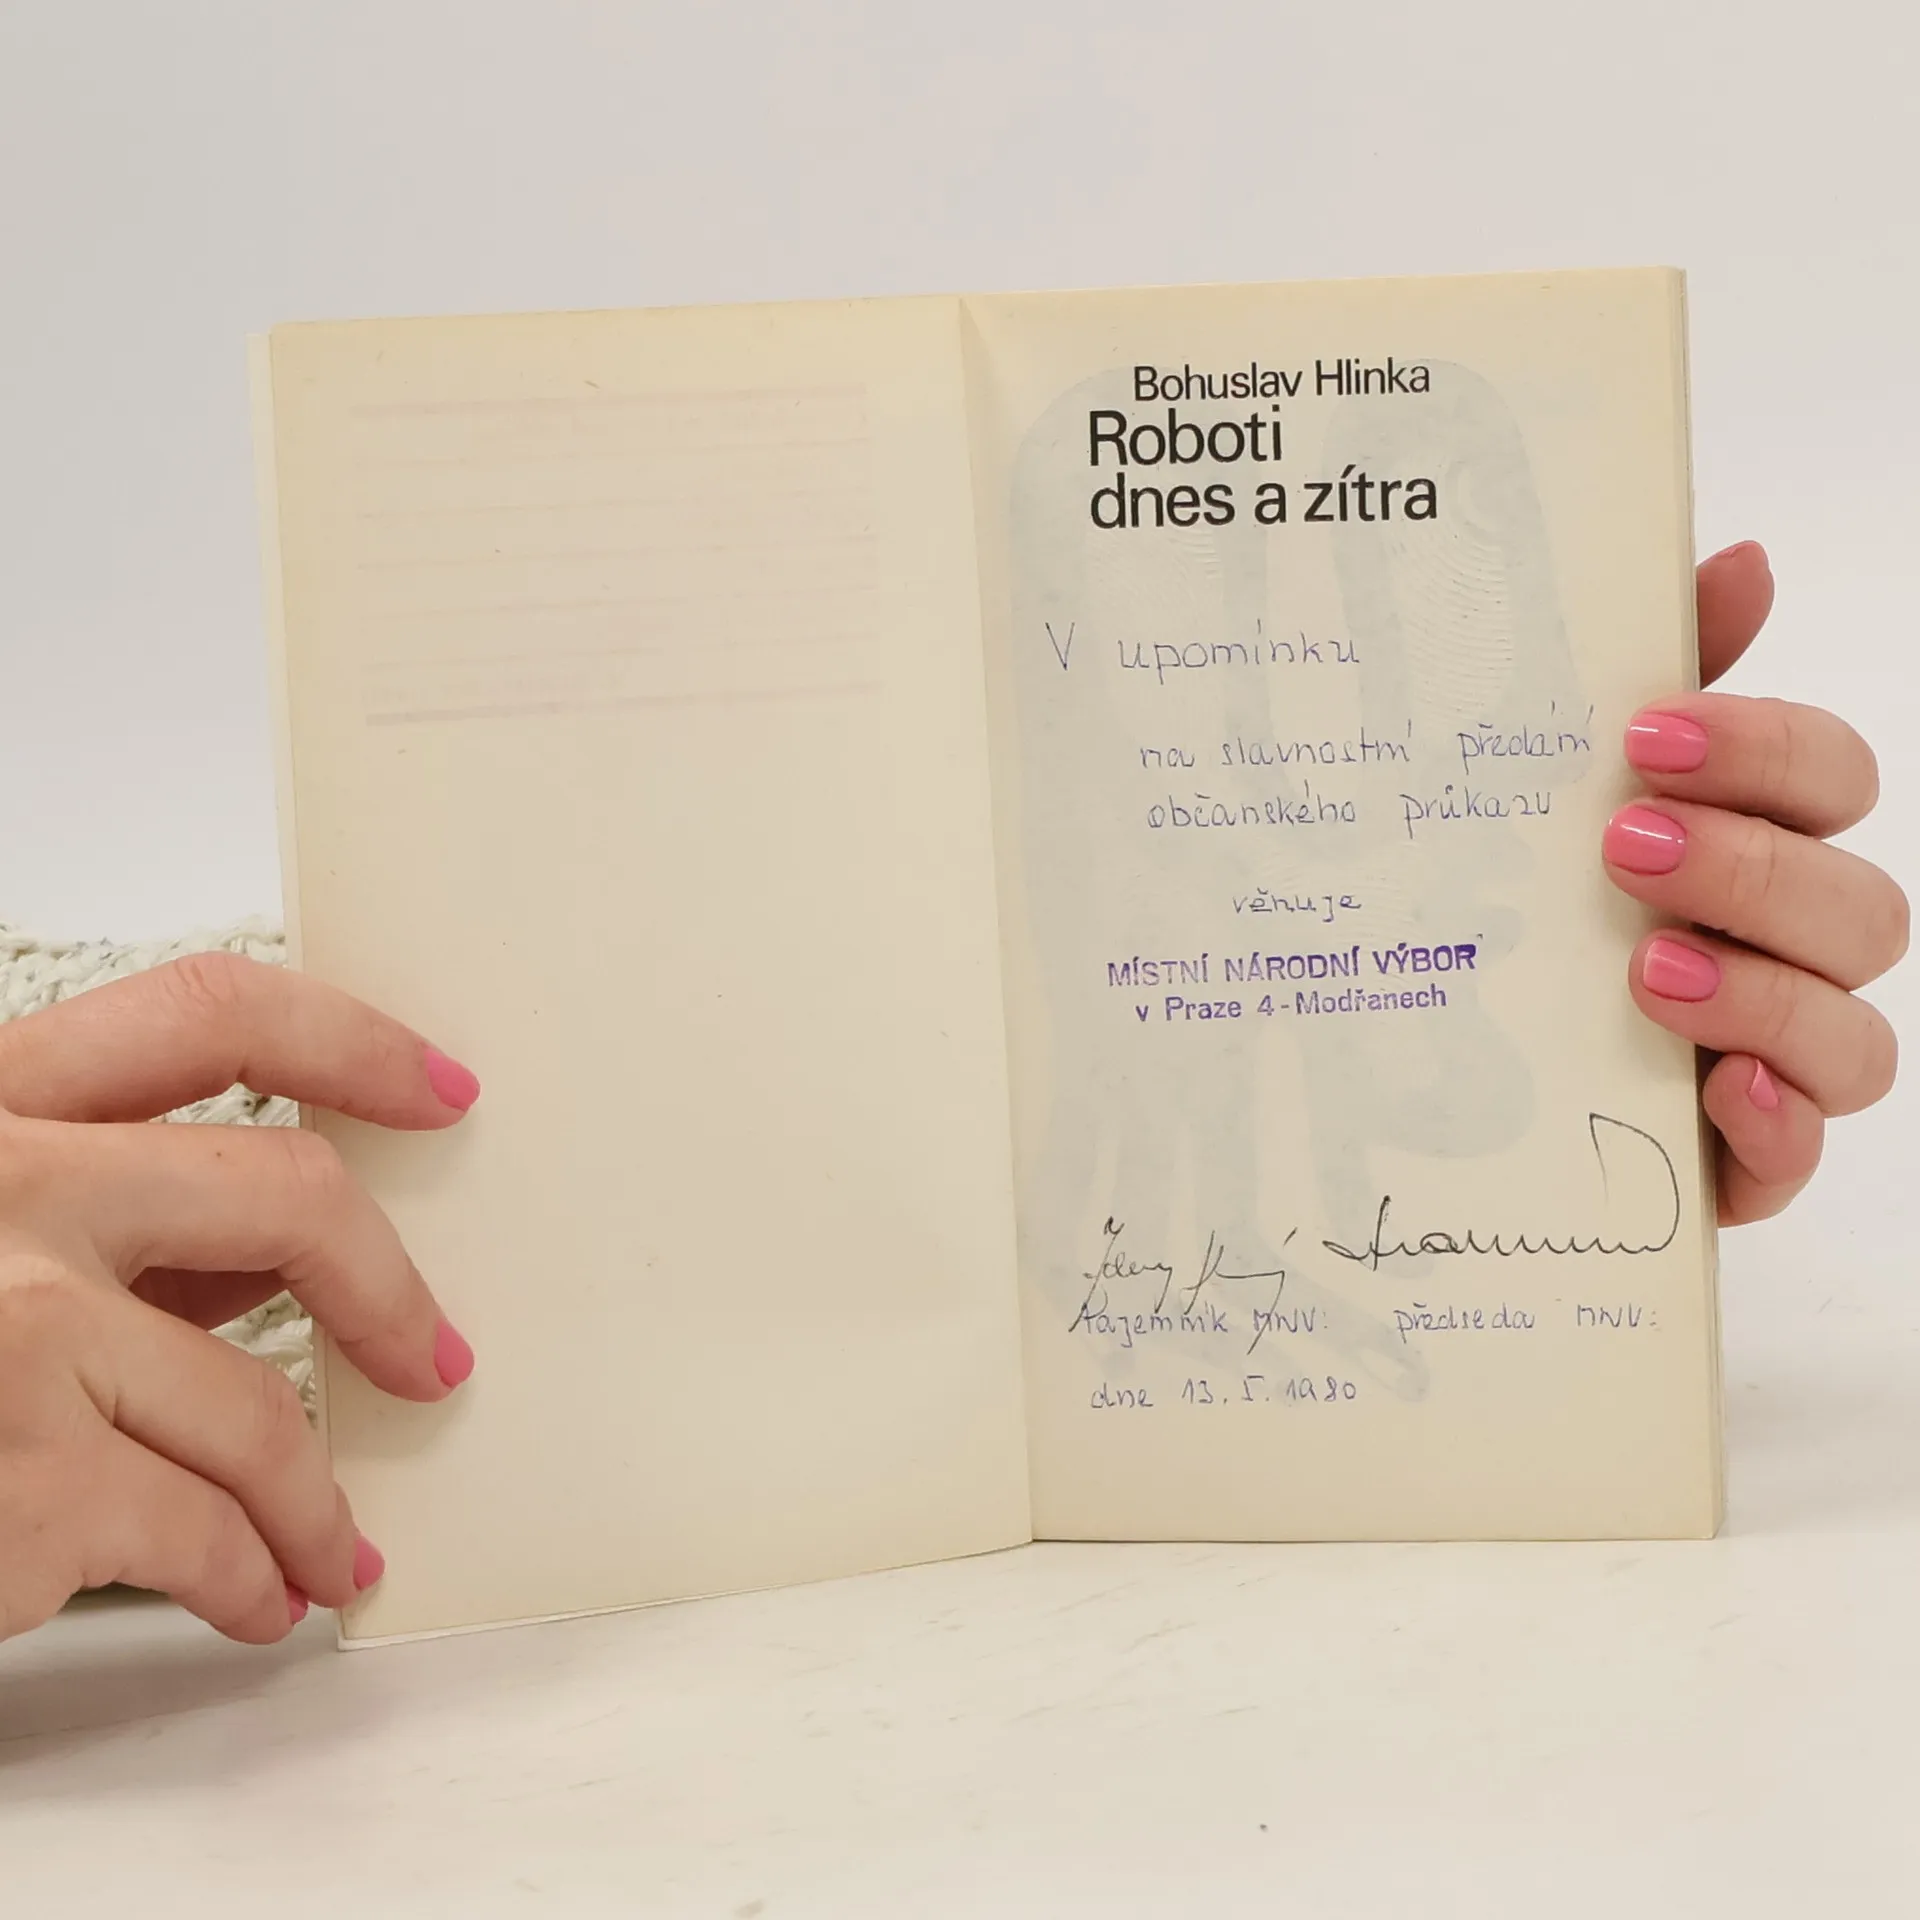 Bohuslav Hlinka
Roboti
dnes a zítra
V upomínku
na slavnostní předání
občanského průkazu
věnuje
MÍSTNÍ NÁRODNÍ VÝBOR
v Praze 4-Modřanech
tajemník MNV: předseda MNV:
dne 13. I. 1980